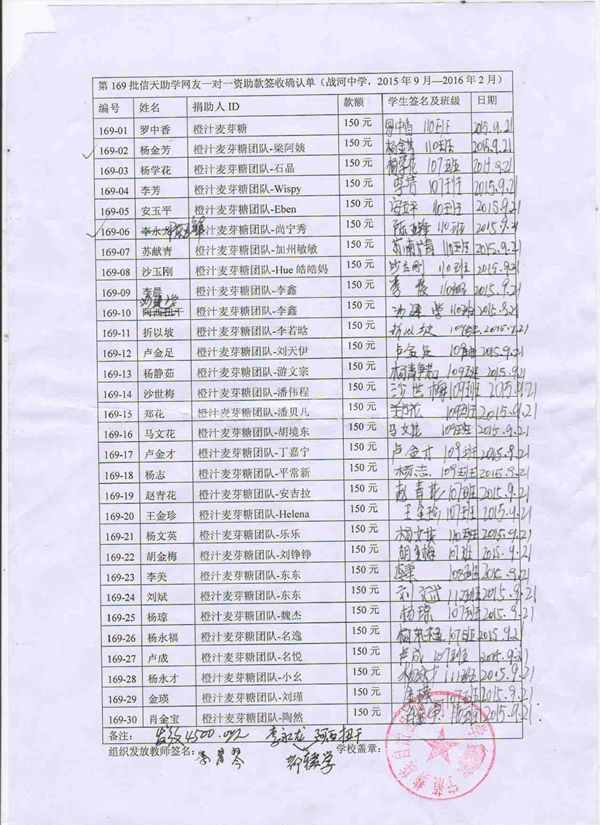 第 169 批信天助学网友一对一资助款签收确认单(战河中学，2015 年 9 月—2016 年 2 月)
编号 姓名 捐助人 ID 款额 学生签名及班级 日期
169-01 罗中香 橙汁麦芽糖 150 元 罗中香 110班 2015.9.21
169-02 杨金芳 橙汁麦芽糖团队-梁阿姨 150 元 杨金芳 110班 2015.9.21
169-03 杨学花 橙汁麦芽糖团队-石晶 150 元 杨学花 107班 2015.9.21
169-04 李芳 橙汁麦芽糖团队-Wispy 150 元 107班 2015.9.21
169-05 安玉平 橙汁麦芽糖团队-Eben 150 元 安玉平 110班 2015.9.21
169-06 李永龙 橙汁麦芽糖团队-尚宁秀 150 元 110班 2015.9.21
169-07 苏献青 橙汁麦芽糖团队-加州敏敏 150 元 110班 2015.9.21
169-08 沙玉刚 橙汁麦芽糖团队-Hue 皓皓妈 150 元 沙玉刚 110班 2015.9.21
169-09 李晨 橙汁麦芽糖团队-李鑫 150 元 李晨 110班 2015.9.21
169-10 橙汁麦芽糖团队-李鑫 150 元 110班 2015.9.21
169-11 折以坡 橙汁麦芽糖团队-李若晗 150 元 折以坡 109班 2015.9.21
169-12 卢金足 橙汁麦芽糖团队-刘天伊 150 元 卢金足 109班 2015.9.21
169-13 杨静茹 橙汁麦芽糖团队-游文宗 150 元 杨静茹 109班 2015.9.21
169-14 沙世梅 橙汁麦芽糖团队-潘伟程 150 元 沙世梅 109班 2015.9.21
169-15 郑花 橙汁麦芽糖团队-潘贝儿 150 元 郑花 109班 2015.9.21
169-16 马文花 橙汁麦芽糖团队-胡境东 150 元 马文花 109班 2015.9.21
169-17 卢金才 橙汁麦芽糖团队-丁嘉宁 150 元 卢金才 109班 2015.9.21
169-18 杨志 橙汁麦芽糖团队-平常新 150 元 杨志 109班 2015.9.21
169-19 赵青花 橙汁麦芽糖团队-安吉拉 150 元 赵青花 107班 2015.9.21
169-20 王金珍 橙汁麦芽糖团队-Helena 150 元 王金珍 107班 2015.9.21
169-21 杨文英 橙汁麦芽糖团队-乐乐 150 元 杨文英 110班 2015.9.21
169-22 胡金梅 橙汁麦芽糖团队-刘铮铮 150 元 胡金梅 107班 2015.9.21
169-23 李美 橙汁麦芽糖团队-东东 150 元 李美 2015.9.21
169-24 刘斌 橙汁麦芽糖团队-东东 150 元 112班 2015.9.21
169-25 杨琼 橙汁麦芽糖团队-魏杰 150 元 杨琼 107班 2015.9.21
169-26 杨永福 橙汁麦芽糖团队-名逸 150 元 107班 2015.9.21
169-27 卢成 橙汁麦芽糖团队-名悦 150 元 卢成 107班 2015.9.21
169-28 杨永才 橙汁麦芽糖团队-小幺 150 元 杨永才 111班 2015.9.21
169-29 金瑛 橙汁麦芽糖团队-刘瑾 150 元 金瑛 2015.9.21
169-30 肖金宝 橙汁麦芽糖团队-陶然 150 元 肖金宝 110班 2015.9.21
备注： 发放4500.00元 李永龙
组织发放教师签名： 学校盖章：